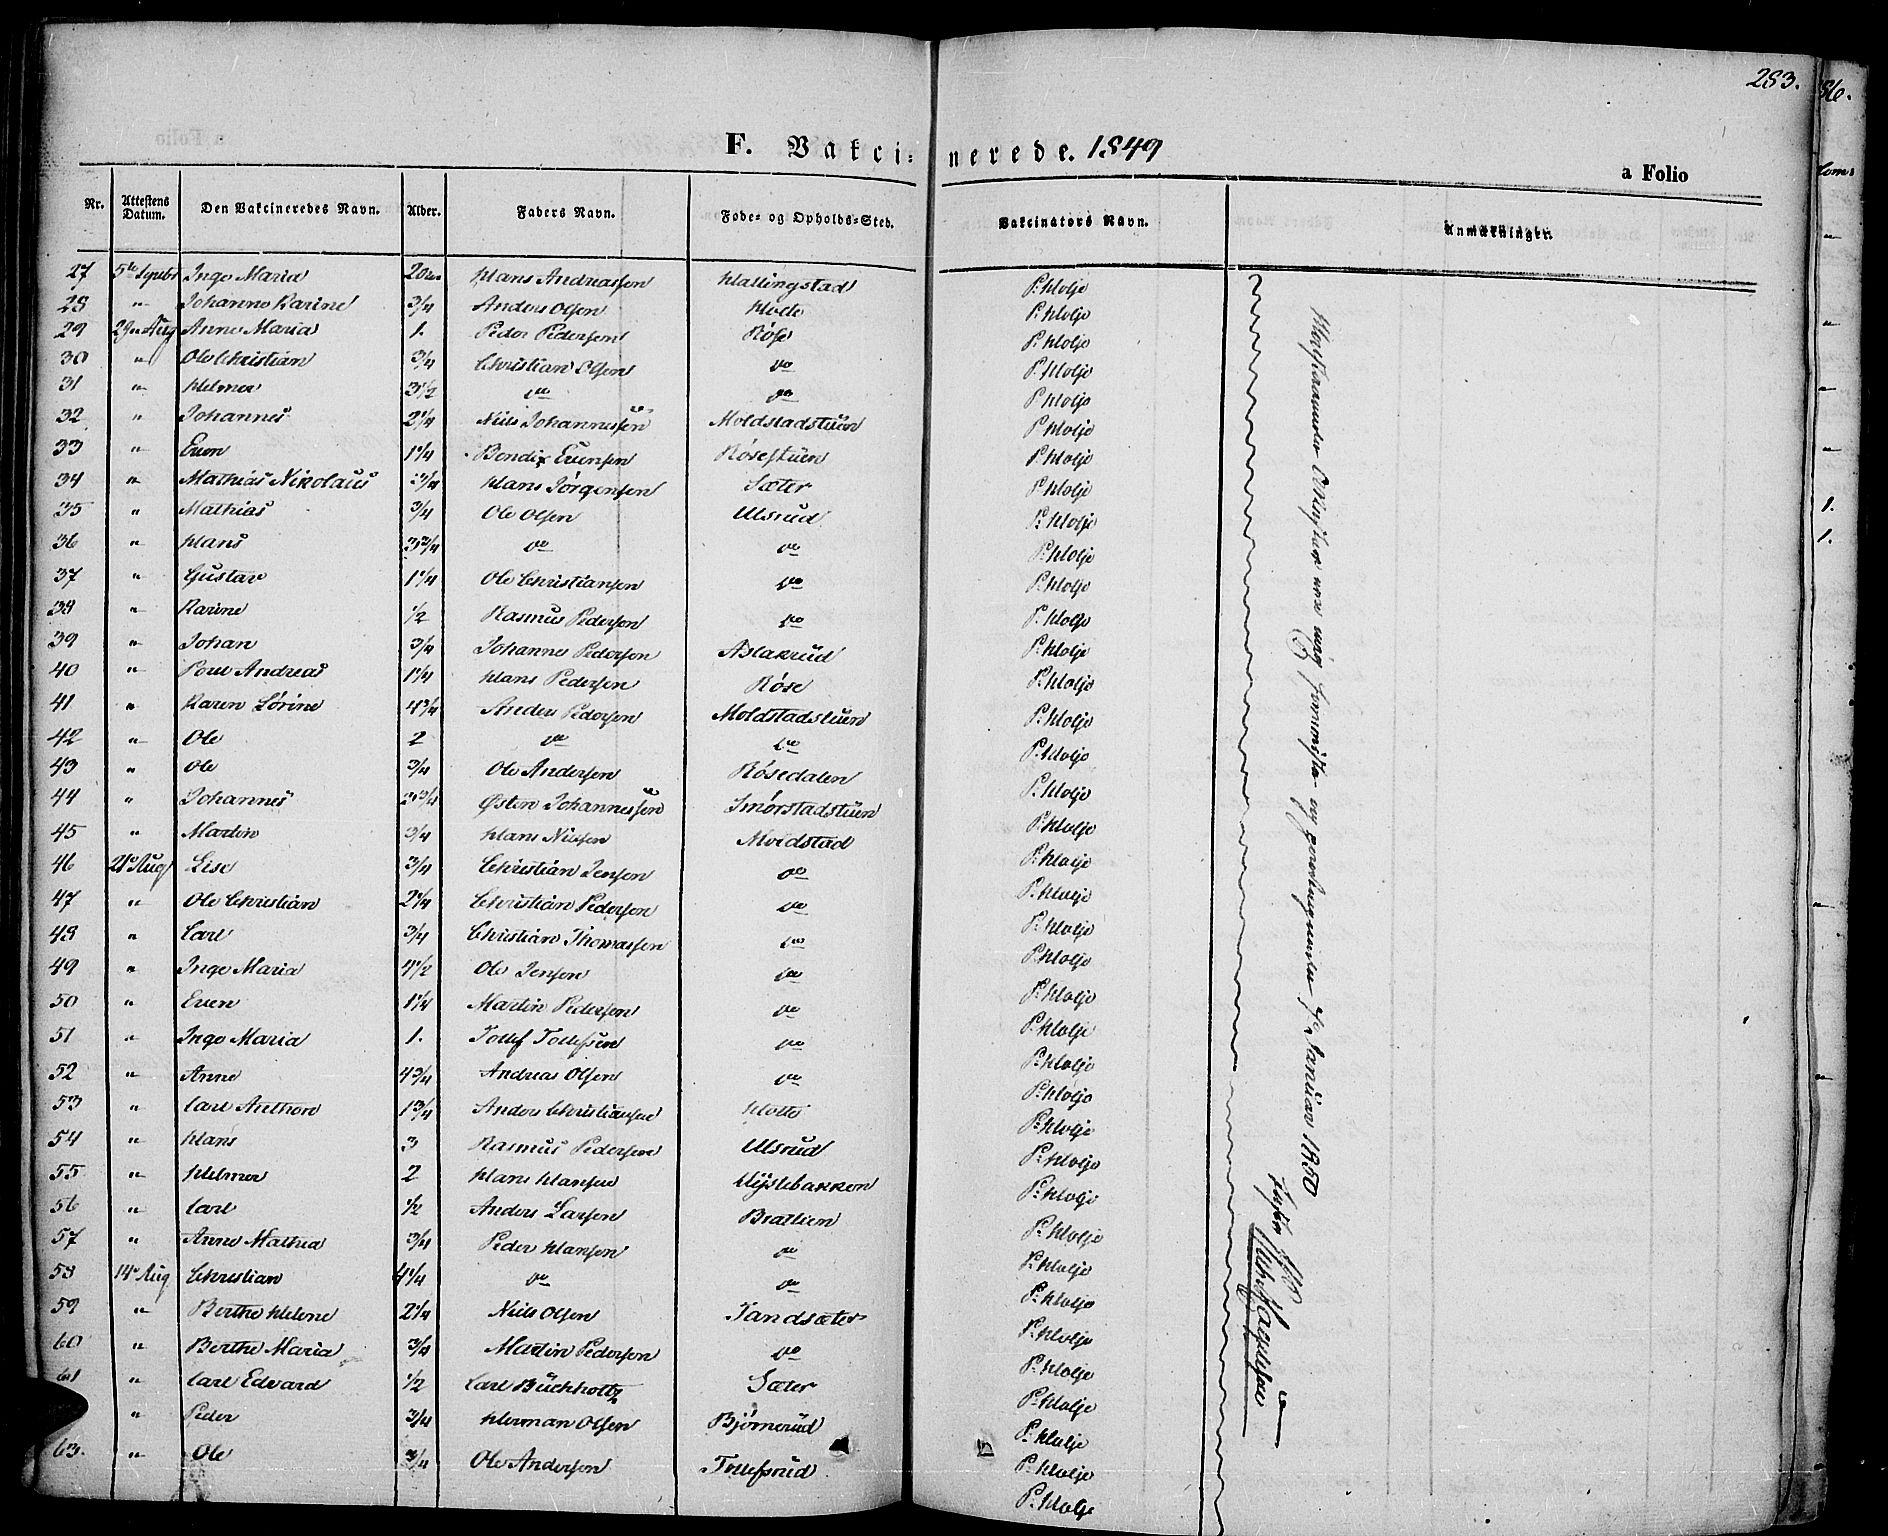 283.
F. Vakci- nerede. 1849
a Folio
Nr. Attestens Datum. Den Vakcineredes Navn. Alder. Faders Navn. Føde- og Opholds-Sted. Vakcinatørs Navn. Anmærkninger.
27 5te Septbr Inge Maria Hans Andreassen Hallingstad P. Holje
28 " Johanne Karine 3/4 Anders Olsen P. Holje
29 29de Aug Anne Maria 1. Peder Pedersen Røse P. Holje
30 " Ole Christian 3/4 Christian Olsen do P. Holje
31 " Helmer 3 1/2 do do P. Holje
32 " Johannes 2 1/4 Niels Johannessen Moldstadstuen P. Holje
33 " Even 1 1/4 Bendix Evensen Røsestuen P. Holje
34 " Mathias Nikolaus 3/4 Hans Jørgensen Sæter P. Holje
35 " Mathias 3/4 Ole Olsen Ulsrud P. Holje
36 " Hans 3 3/4 do do P. Holje
37 " Gustav 1 1/4 Ole Christiansen do P. Holje
38 " Karine 1/2 Rasmus Pedersen do P. Holje
39 " Johan 3/4 Johannes Pedersen Aslakrud P. Holje
40 " Poul Andreas 1 1/4 Hans Pedersen Røse P. Holje
41 " Karen Sørine 4 3/4 Anders Pedersen Moldstadstuen P. Holje
42 " Ole 2 do do P. Holje
43 " Ole 3/4 Ole Andersen Røsedalen P. Holje
44 " Johannes 2 3/4 Østen Johannessen Smørstadstuen P. Holje
45 " Martin 3/4 Hans Nielsen Moldstad P. Holje
46 21de Aug Lise 3/4 Christian Jensen do P. Holje
47 " Ole Christian 2 1/4 Christian Pedersen do P. Holje
48 " Carl 3/4 Christian Thomassen do P. Holje
49 " Inge Maria 4 1/2 Ole Jensen do P. Holje
50 " Even 1 1/4 Martin Pedersen do P. Holje
51 " Inge Maria 1. Tollef Tollefsen do P. Holje
52 " Anne 4 3/4 Andreas Olsen do P. Holje
53 " Carl Anthon 1 3/4 Anders Christiansen P. Holje
54 " Hans 3 Rasmus Pedersen Ulsrud P. Holje
55 " Helmer 2 Hans Hansen P. Holje
56 " Carl 1/2 Anders Larsen Bratlien P. Holje
57 " Anne Mathea 3/4 Peder Hansen do P. Holje
58 14de Aug Christian 4 1/4 do do P. Holje
59 " Berthe Helene 2 1/4 Niels Olsen Sandsæter P. Holje
60 " Berthe Maria 3/4 Martin Pedersen do P. Holje
61 " Carl Edvard 1/2 Carl Büchholtz Sæter P. Holje
" Peder 3/4 Herman Olsen Bjørnerud P. Holje
63. " Ole 3/4 Ole Andersen Tollefsrud P. Holje
P. Holje
Januar 1850